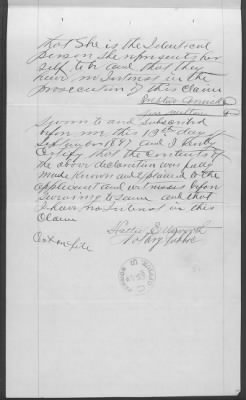 that She is the Identical
person She represents her
self to be and that they
have no Interest in the
prosecution of this claim
Sworn to and Subscribed
before me this 13th day of
September 1897 and I hereby
Certify that the contents of
the above declaration was fully
made known and Explained to the
applicant and witnesses before
Swearing to same and that
I have no Interest in this
Claim
Notary Public
on file